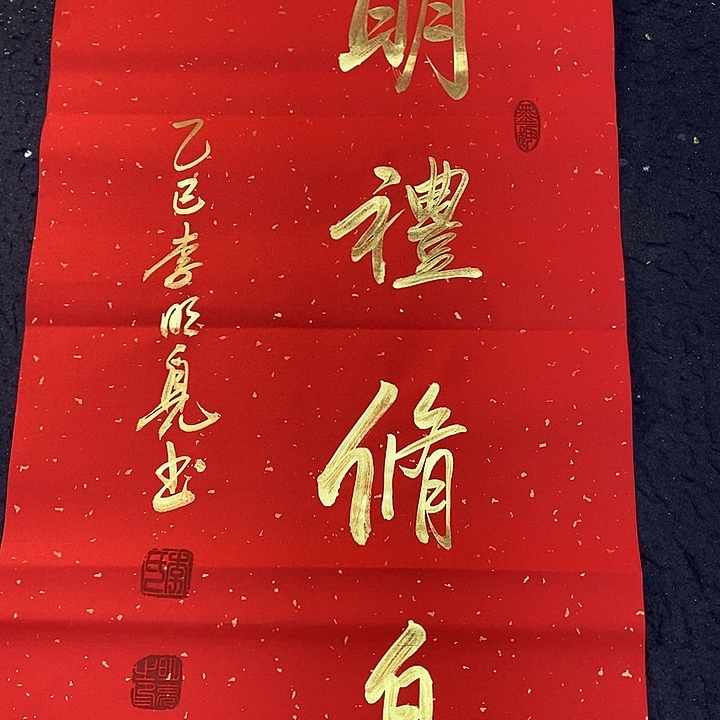 明禮脩
乙巳李明亮书